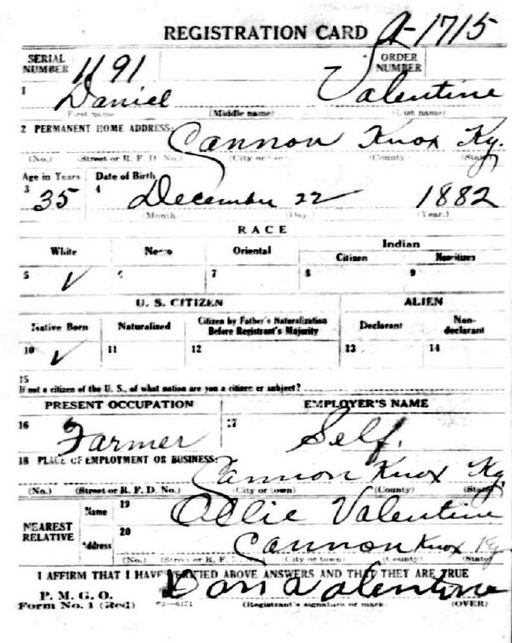 REGISTRATION CARD A-1715
SERIAL NUMBER 1191 ORDER NUMBER
1 Daniel Valentine
First name (Middle name) (Last name)
2 PERMANENT HOME ADDRESS:
Cannon Knox Ky.
(No.) (Street or R. F. D. No.) (City or town) (County) (State)
Age in Years Date of Birth
3 35 4 December 22 1882
(Month) (Day) (Year)
RACE
White Negro Oriental Indian
Citizen Noncitizen
5 ✓ 6 7 8 9
U. S. CITIZEN ALIEN
Native Born Naturalized Citizen by Father's Naturalization Before Registrant's Majority Declarant Non-declarant
10 ✓ 11 12 13 14
15
If not a citizen of the U. S., of what nation are you a citizen or subject?
PRESENT OCCUPATION EMPLOYER'S NAME
16 Farmer 17 Self.
18 PLACE OF EMPLOYMENT OR BUSINESS:
Cannon Knox Ky
(No.) (Street or R. F. D. No.) (City or town) (County) (State)
NEAREST RELATIVE Name 19 Ollie Valentine
Address 20 Cannon Knox Ky
(No.) (Street or R. F. D. No.) (City or town) (County) (State)
I AFFIRM THAT I HAVE VERIFIED ABOVE ANSWERS AND THAT THEY ARE TRUE
P. M. G. O.
Form No. 1 (Red) Dan Valentine
(Registrant's signature or mark) (OVER)